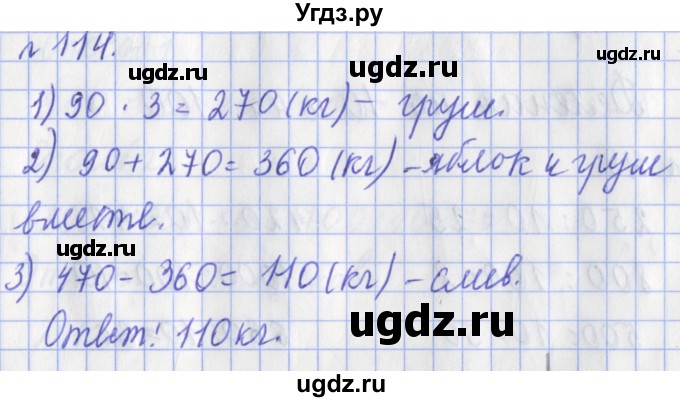 Угдз.ру
№ 114.
ugdz.ru
ugdz.ru
1) 90 · 3 = 270 (кг) – груш.
2) 90 + 270 = 360 (кг) – яблок и груш
ugdz.ru
вместе.
ugdz.ru
3) 470 – 360 = 110 (кг) – слив.
ugdz.ru
Ответ: 110 кг.
ugdz.ru